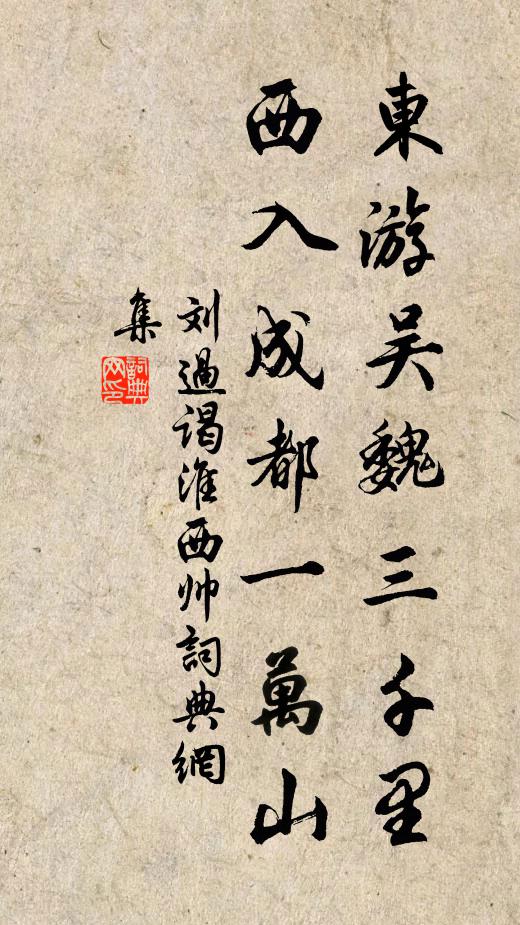 東游吴魏三千里
西入成都一萬山
刘過谒淮西帅詞典網
集
詞典網印